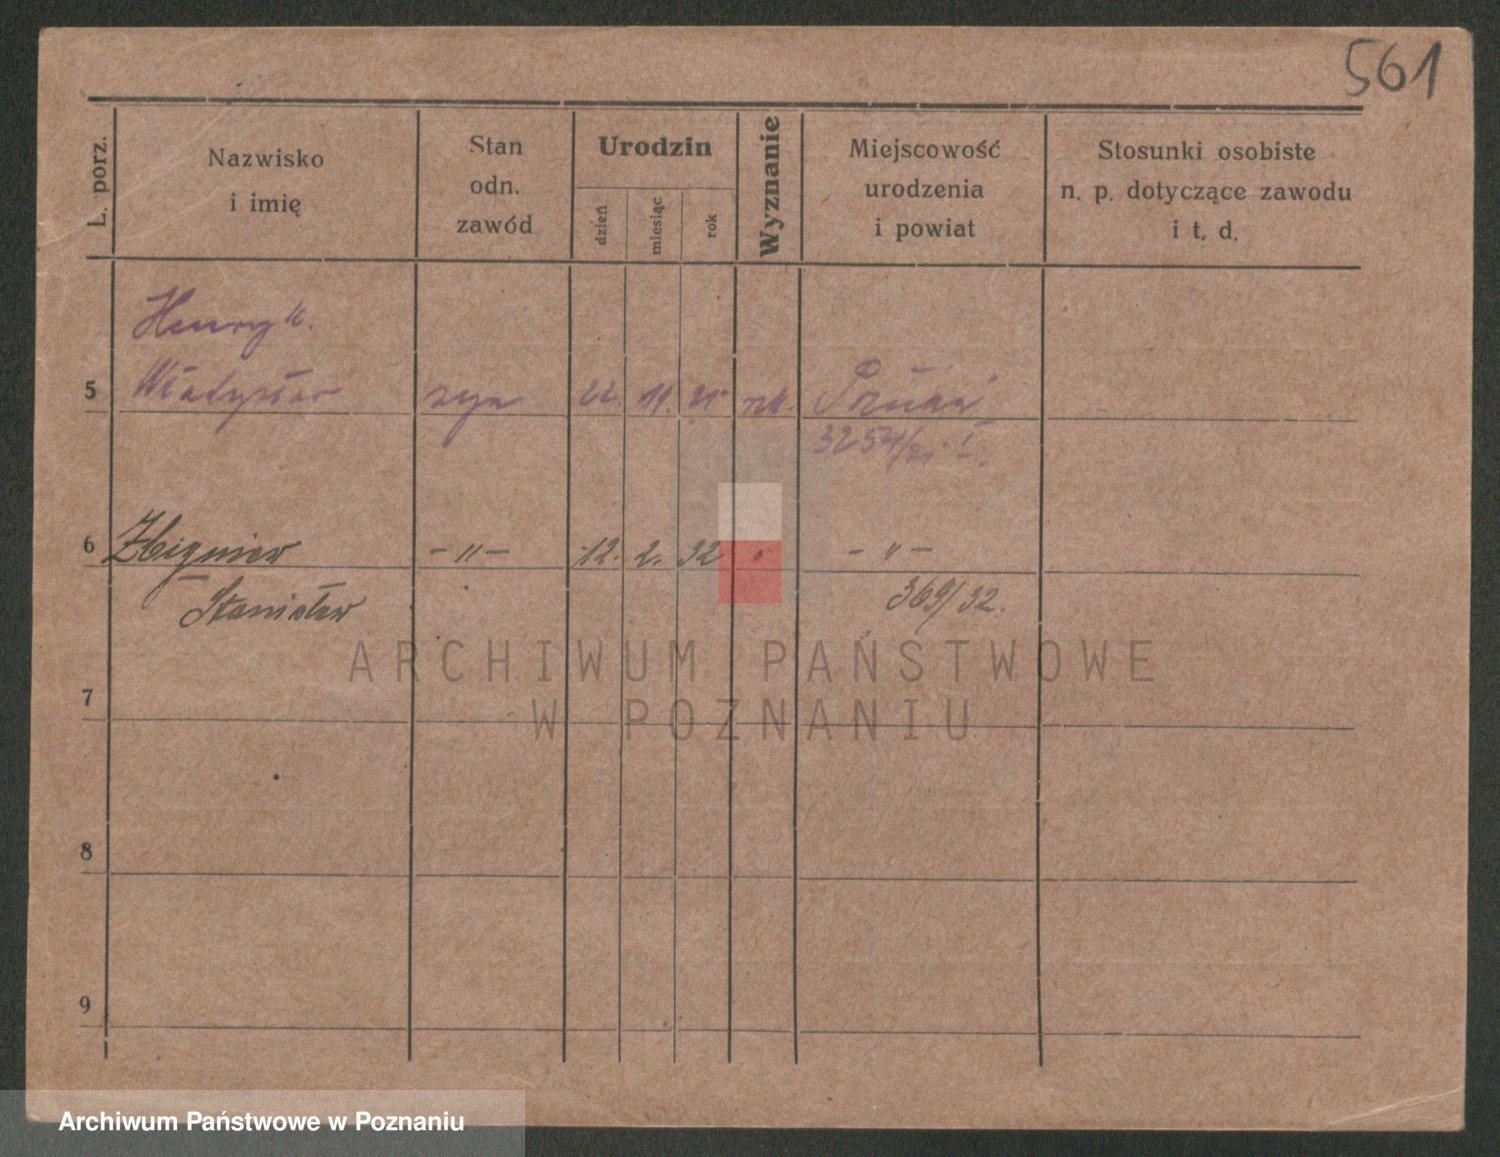 561
L. porz.
Nazwisko
i imię
Stan
odn.
zawód
Urodzin
dzień
miesiąc
rok
Wyznanie
Miejscowość
urodzenia
i powiat
Stosunki osobiste
n. p. dotyczące zawodu
i t. d.
Henryk
5 Władysław syn 22. 11. 21 rzk.
3254/21 I.
6 Zbigniew - " - 12. 2. 32 " - " -
Stanisław 369/32.
ARCHIWUM PAŃSTWOWE
W POZNANIU
7
8
9
Archiwum Państwowe w Poznaniu